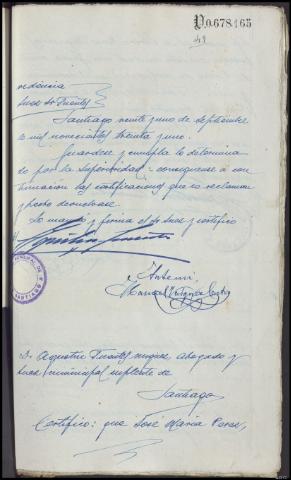 P0.678.165
49
videncia
Juez Sr Fuentes
Santiago veinte y uno de septiembre
de mil novecientos treinta y uno.
Guardese y cumplase lo determina
do por la Superioridad; consignese a con
tinuacion las certificaciones que se reclaman
y hecho devuelvase.
Lo manda y firma el Sr Juez y certifico
Agustin Fuentes
Antemi,
Manuel
SANTIAGO
D. Agustin Fuentes mugica, abogado y
Juez municipal suplente de
Santiago
Certifico: que José Maria Perez,